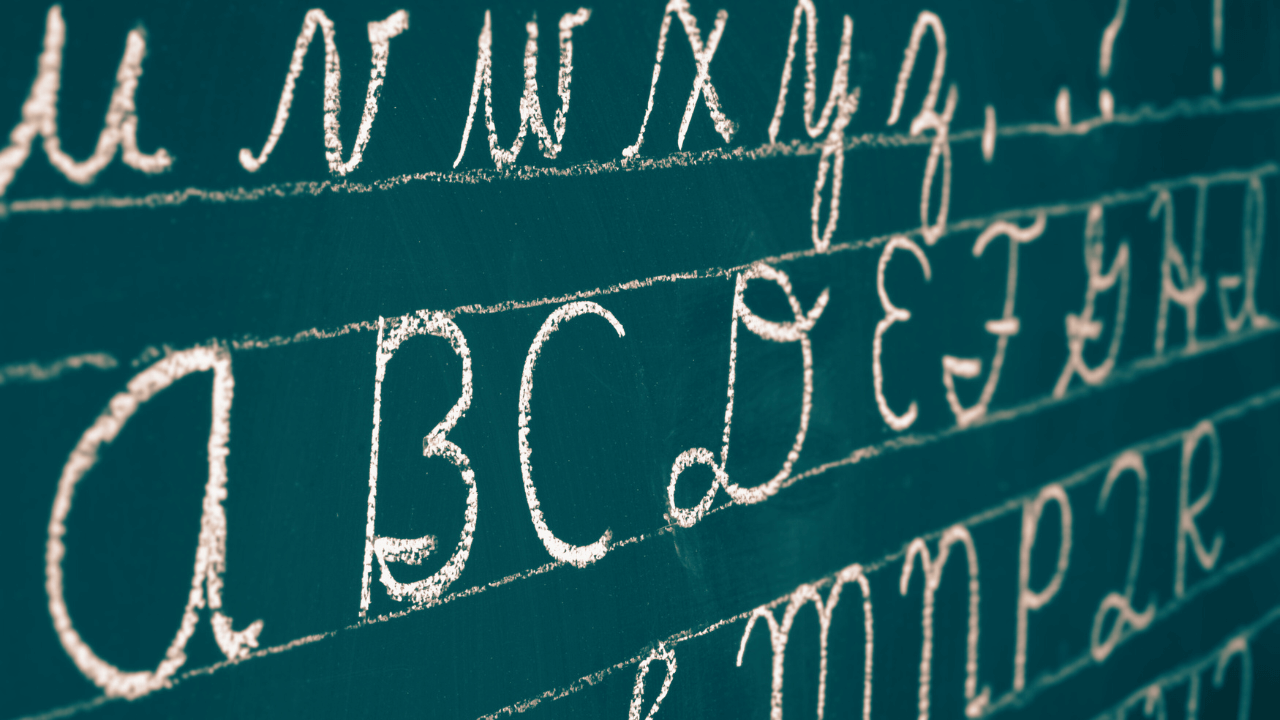 u v w x y z , . ? !
A B C D E F G H I
M N P Q R